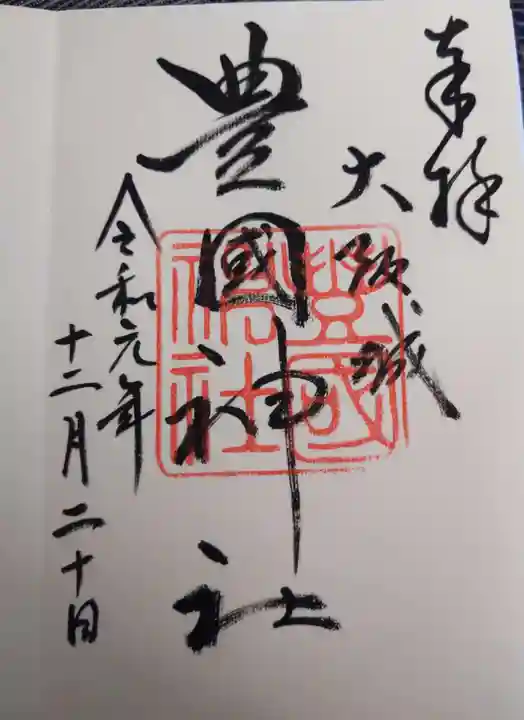 奉拝
大阪城
豊國神社
豊國
神社
令和元年
十二月二十日